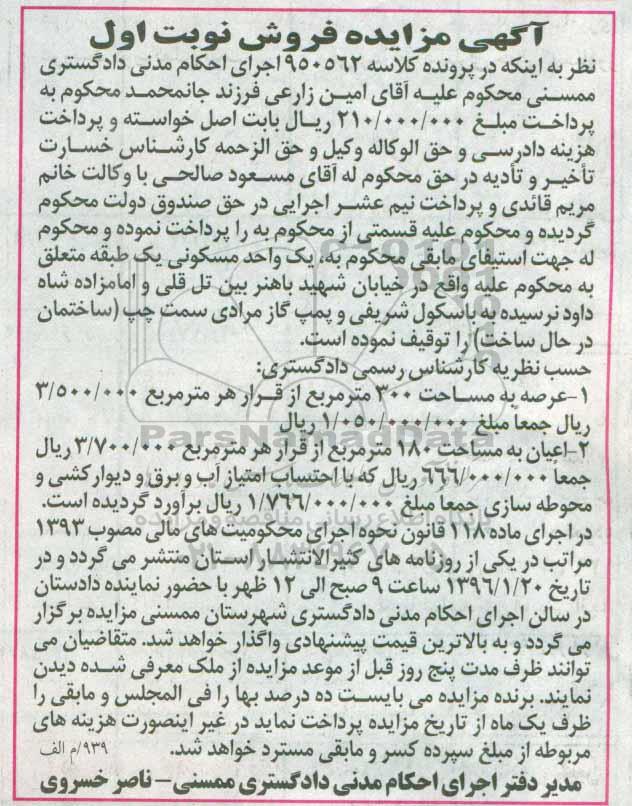 آگهی مزایده فروش نوبت اول
نظر به اینکه در پرونده کلاسه ۹۵۰۵۶۲ اجرای احکام مدنی دادگستری
ممسنی محکوم علیه آقای امین زارعی فرزند جانمحمد محکوم به
پرداخت مبلغ ۲۱۰/۰۰۰/۰۰۰ ریال بابت اصل خواسته و پرداخت
هزینه دادرسی و حق الوکاله وکیل و حق الزحمه کارشناس خسارت
تأخیر و تأدیه در حق محکوم له آقای مسعود صالحی با وکالت خانم
مریم قائدی و پرداخت نیم عشر اجرایی در حق صندوق دولت محکوم
گردیده و محکوم علیه قسمتی از محکوم به را پرداخت نموده و محکوم
له جهت استیفای مابقی محکوم به، یک واحد مسکونی یک طبقه متعلق
به محکوم علیه واقع در خیابان شهید باهنر بین تل قلی و امامزاده شاه
داود نرسیده به باسکول شریفی و پمپ گاز مرادی سمت چپ (ساختمان
در حال ساخت) را توقیف نموده است.
حسب نظریه کارشناس رسمی دادگستری:
۱-عرصه به مساحت ۳۰۰ مترمربع از قرار هر مترمربع ۳/۵۰۰/۰۰۰
ریال جمعا مبلغ ۱/۰۵۰/۰۰۰/۰۰۰ ریال
ParsNamadData
۲-اعیان به مساحت ۱۸۰ مترمربع از قرار هر مترمربع ۳/۷۰۰/۰۰۰ ریال
جمعا ۶۶۶/۰۰۰/۰۰۰ ریال که با احتساب امتیاز آب و برق و دیوارکشی و
محوطه سازی جمعا مبلغ ۱/۷۶۶/۰۰۰/۰۰۰ ریال برآورد گردیده است.
پایگاه اطلاع رسانی مناقصه و مزایده
در اجرای ماده ۱۱۸ قانون نحوه اجرای محکومیت های مالی مصوب ۱۳۹۳
مراتب در یکی از روزنامه های کثیرالانتشار استان منتشر می گردد و در
تاریخ ۱۳۹۶/۱/۲۰ ساعت ۹ صبح الی ۱۲ ظهر با حضور نماینده دادستان
در سالن اجرای احکام مدنی دادگستری شهرستان ممسنی مزایده برگزار
می گردد و به بالاترین قیمت پیشنهادی واگذار خواهد شد. متقاضیان می
توانند ظرف مدت پنج روز قبل از موعد مزایده از ملک معرفی شده دیدن
نمایند. برنده مزایده می بایست ده درصد بها را فی المجلس و مابقی را
ظرف یک ماه از تاریخ مزایده پرداخت نماید در غیر اینصورت هزینه های
مربوطه از مبلغ سپرده کسر و مابقی مسترد خواهد شد. ۹۳۹/م الف
مدیر دفتر اجرای احکام مدنی دادگستری ممسنی- ناصر خسروی